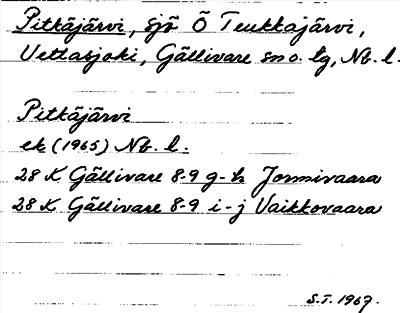 Pitkäjärvi, sjö Ö Teukkajärvi,
Vettasjoki, Gällivare sn o. tg, Nb. l.
Pitkäjärvi
ek (1965) Nb. l.
28 K Gällivare 8-9 g-h Jormivaara
28 K Gällivare 8-9 i-j Vaikkovaara
S.T. 1967.